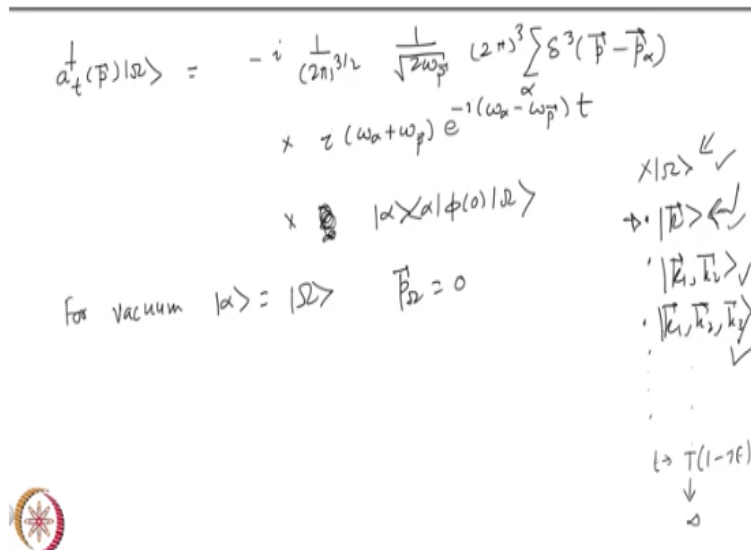 a†_t(p⃗)|Ω⟩ = -i 1/(2π)^{3/2} 1/√(2ω_p⃗) (2π)^3 ∑_α δ^3(p⃗ - p⃗_α)
× i(ω_α + ω_p⃗) e^{-i(ω_α - ω_p⃗)t}
× |α⟩⟨α|ϕ(0)|Ω⟩
For vacuum |α⟩ = |Ω⟩ p⃗_Ω = 0
×|Ω⟩ ⇐ ✓
→· |k⃗⟩ ⇐ ✓
· |k⃗_1, k⃗_2⟩ ✓
· |k⃗_1, k⃗_2, k⃗_3⟩
✓
t → T(1-iϵ)
↓
∞